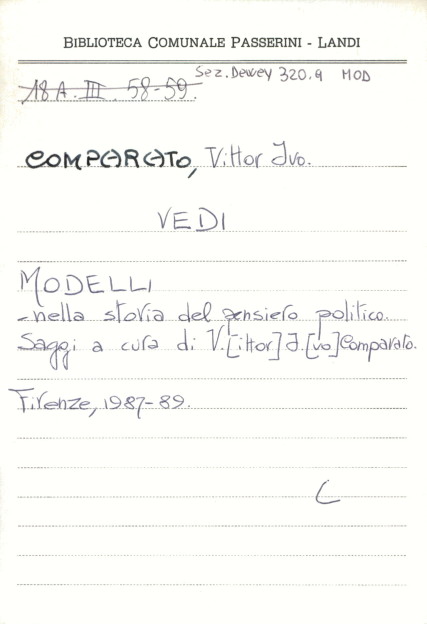 BIBLIOTECA COMUNALE PASSERINI - LANDI
Sez. Dewey 320.9 MOD
18 A. III. 58-59.
COMPARATO, Vittor Ivo.
VEDI
MODELLI
- nella storia del pensiero politico.
Saggi a cura di V.[ittor] I.[vo] Comparato.
Firenze, 1987-89.
C